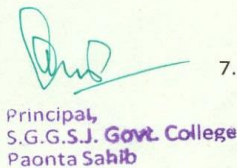 7.
Principal,
S.G.G.S.J. Govt. College
Paonta Sahib